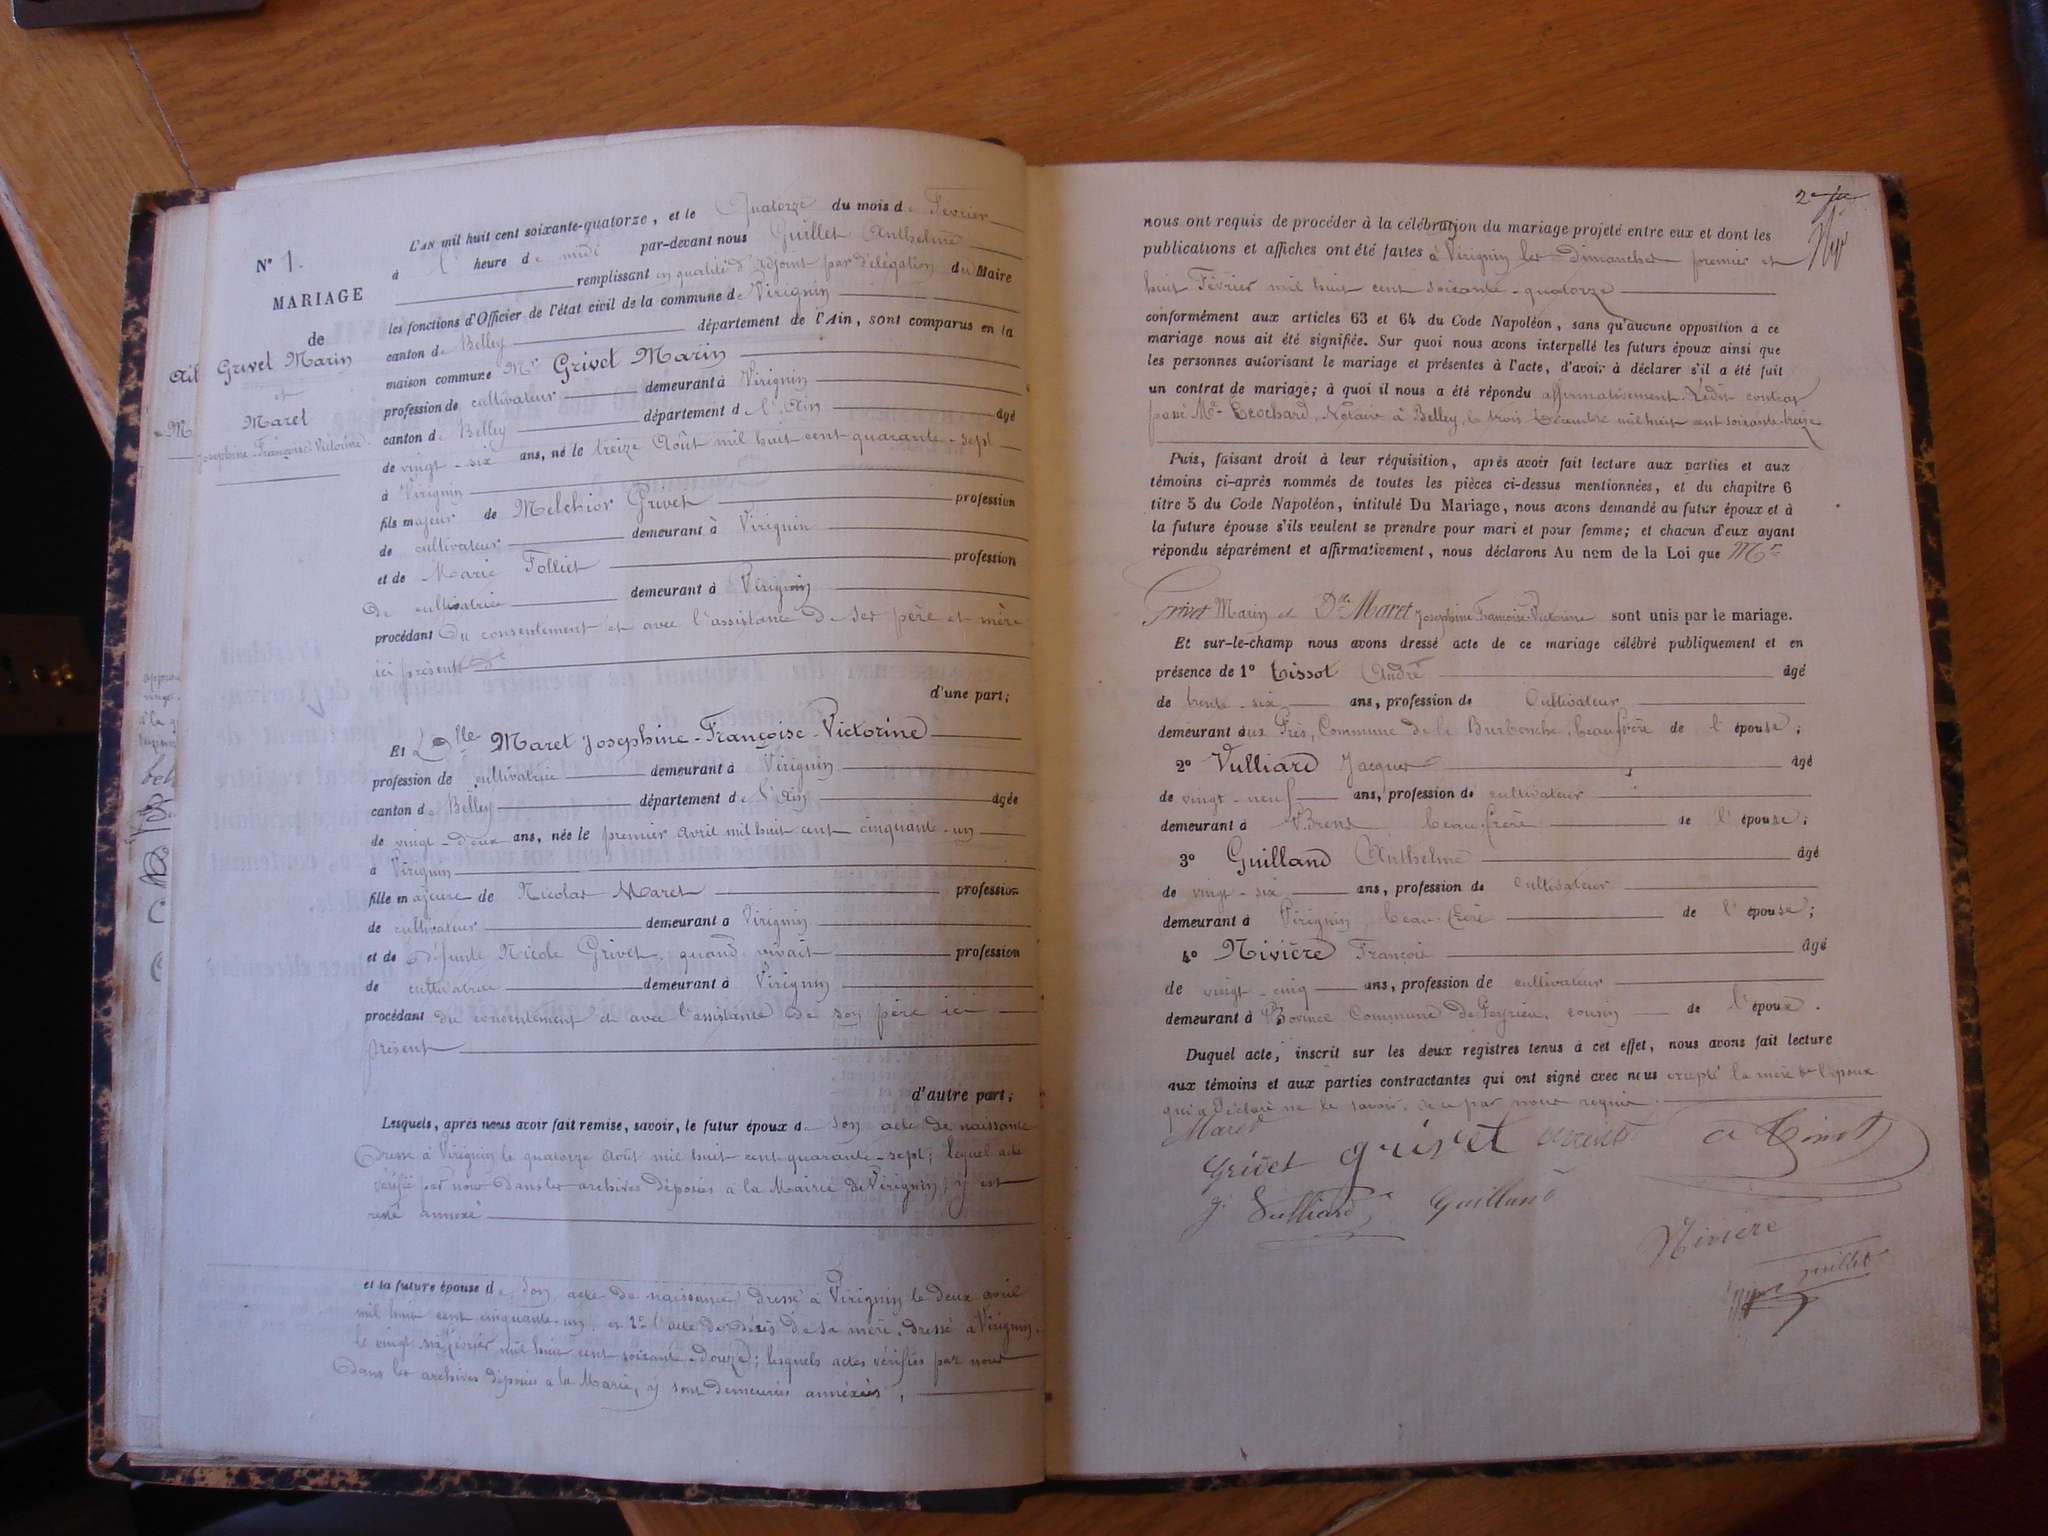 N° 1.
MARIAGE
de
Grivet Marin
et
Maret
Josephine-Françoise-Victorine
L'AN mil huit cent soixante-quatorze, et le Quatorze du mois de Février
à l' heure de midi par-devant nous Guillet Anthelme
remplissant en qualité d'Adjoint par délégation du Maire
les fonctions d'Officier de l'état civil de la commune de Virignin
canton de Belley département de l'Ain, sont comparus en la
maison commune Mr Grivet Marin
profession de cultivateur demeurant à Virignin
canton de Belley département de l'Ain âgé
de vingt-six ans, né le treize Août mil huit cent quarante-sept
à Virignin
fils majeur de Melchior Grivet profession
de cultivateur demeurant à Virignin
et de Marie Folliet profession
De cultivatrice demeurant à Virignin
procédant Du consentement et avec l'assistance De ses père et mère
ici présents
d'une part;
Et Dlle Maret Josephine-Françoise-Victorine
profession de cultivatrice demeurant à Virignin
canton de Belley département de l'Ain âgée
de vingt-deux ans, née le premier avril mil huit cent cinquante-un
à Virignin
fille majeure de Nicolas Maret profession
de cultivateur demeurant à Virignin
et de défunte Nicole Grivet, quand vivait profession
de cultivatrice demeurant à Virignin
procédant du consentement et avec l'assistance de son père ici
présent
d'autre part;
Lesquels, après nous avoir fait remise, savoir, le futur époux de son acte de naissance
Dressé à Virignin le quatorze Août mil huit cent quarante-sept; lequel acte
vérifié par nous dans les archives déposées à la Mairie de Virignin, y est
resté annexé
et la future épouse de son acte de naissance dressé à Virignin le deux avril
mil huit cent cinquante-un, et 2° l'acte de décès de sa mère, dressé à Virignin
le vingt six février mil huit cent soixante-douze; lesquels actes vérifiés par nous
Dans les archives déposées à la Mairie, y sont demeurés annexés,
2e
nous ont requis de procéder à la célébration du mariage projeté entre eux et dont les
publications et affiches ont été faites à Virignin les Dimanches premier et
huit Février mil huit cent soixante-quatorze
conformément aux articles 63 et 64 du Code Napoléon, sans qu'aucune opposition à ce
mariage nous ait été signifiée. Sur quoi nous avons interpellé les futurs époux ainsi que
les personnes autorisant le mariage et présentes à l'acte, d'avoir à déclarer s'il a été fait
un contrat de mariage; à quoi il nous a été répondu affirmativement. Ledit contrat
passé Me Trochard, Notaire à Belley, le trois Décembre mil huit cent soixante-treize
Puis, faisant droit à leur réquisition, après avoir fait lecture aux parties et aux
témoins ci-après nommés de toutes les pièces ci-dessus mentionnées, et du chapitre 6
titre 5 du Code Napoléon, intitulé Du Mariage, nous avons demandé au futur époux et à
la future épouse s'ils veulent se prendre pour mari et pour femme; et chacun d'eux ayant
répondu séparément et affirmativement, nous déclarons Au nom de la Loi que Mr
Grivet Marin et Dlle Maret Josephine-Françoise-Victorine sont unis par le mariage.
Et sur-le-champ nous avons dressé acte de ce mariage célébré publiquement et en
présence de 1° Tissot André âgé
de trente-six ans, profession de Cultivateur
demeurant aux Près, Commune de la Burbanche, beau frère de l'épouse;
2° Vulliard Jacques âgé
de vingt-neuf ans, profession de cultivateur
demeurant à Brens beau-frère de l'épouse;
3° Guilland Anthelme âgé
de vingt-six ans, profession de cultivateur
demeurant à Virignin, beau-frère de l'épouse;
4° Nivière François âgé
de vingt-cinq ans, profession de cultivateur
demeurant à Bovinel Commune de Peyrieu, cousin de l'époux.
Duquel acte, inscrit sur les deux registres tenus à cet effet, nous avons fait lecture
aux témoins et aux parties contractantes qui ont signé avec nous excepté la mère de l'époux
qui a déclaré ne le savoir, de ce par nous requise.
Maret
Grivet grivet A Tissot
J. Vulliard Guilland
Nivière
Guillet